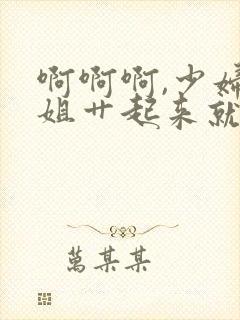 啊啊啊,少婦
姐艹起来就
萬某某